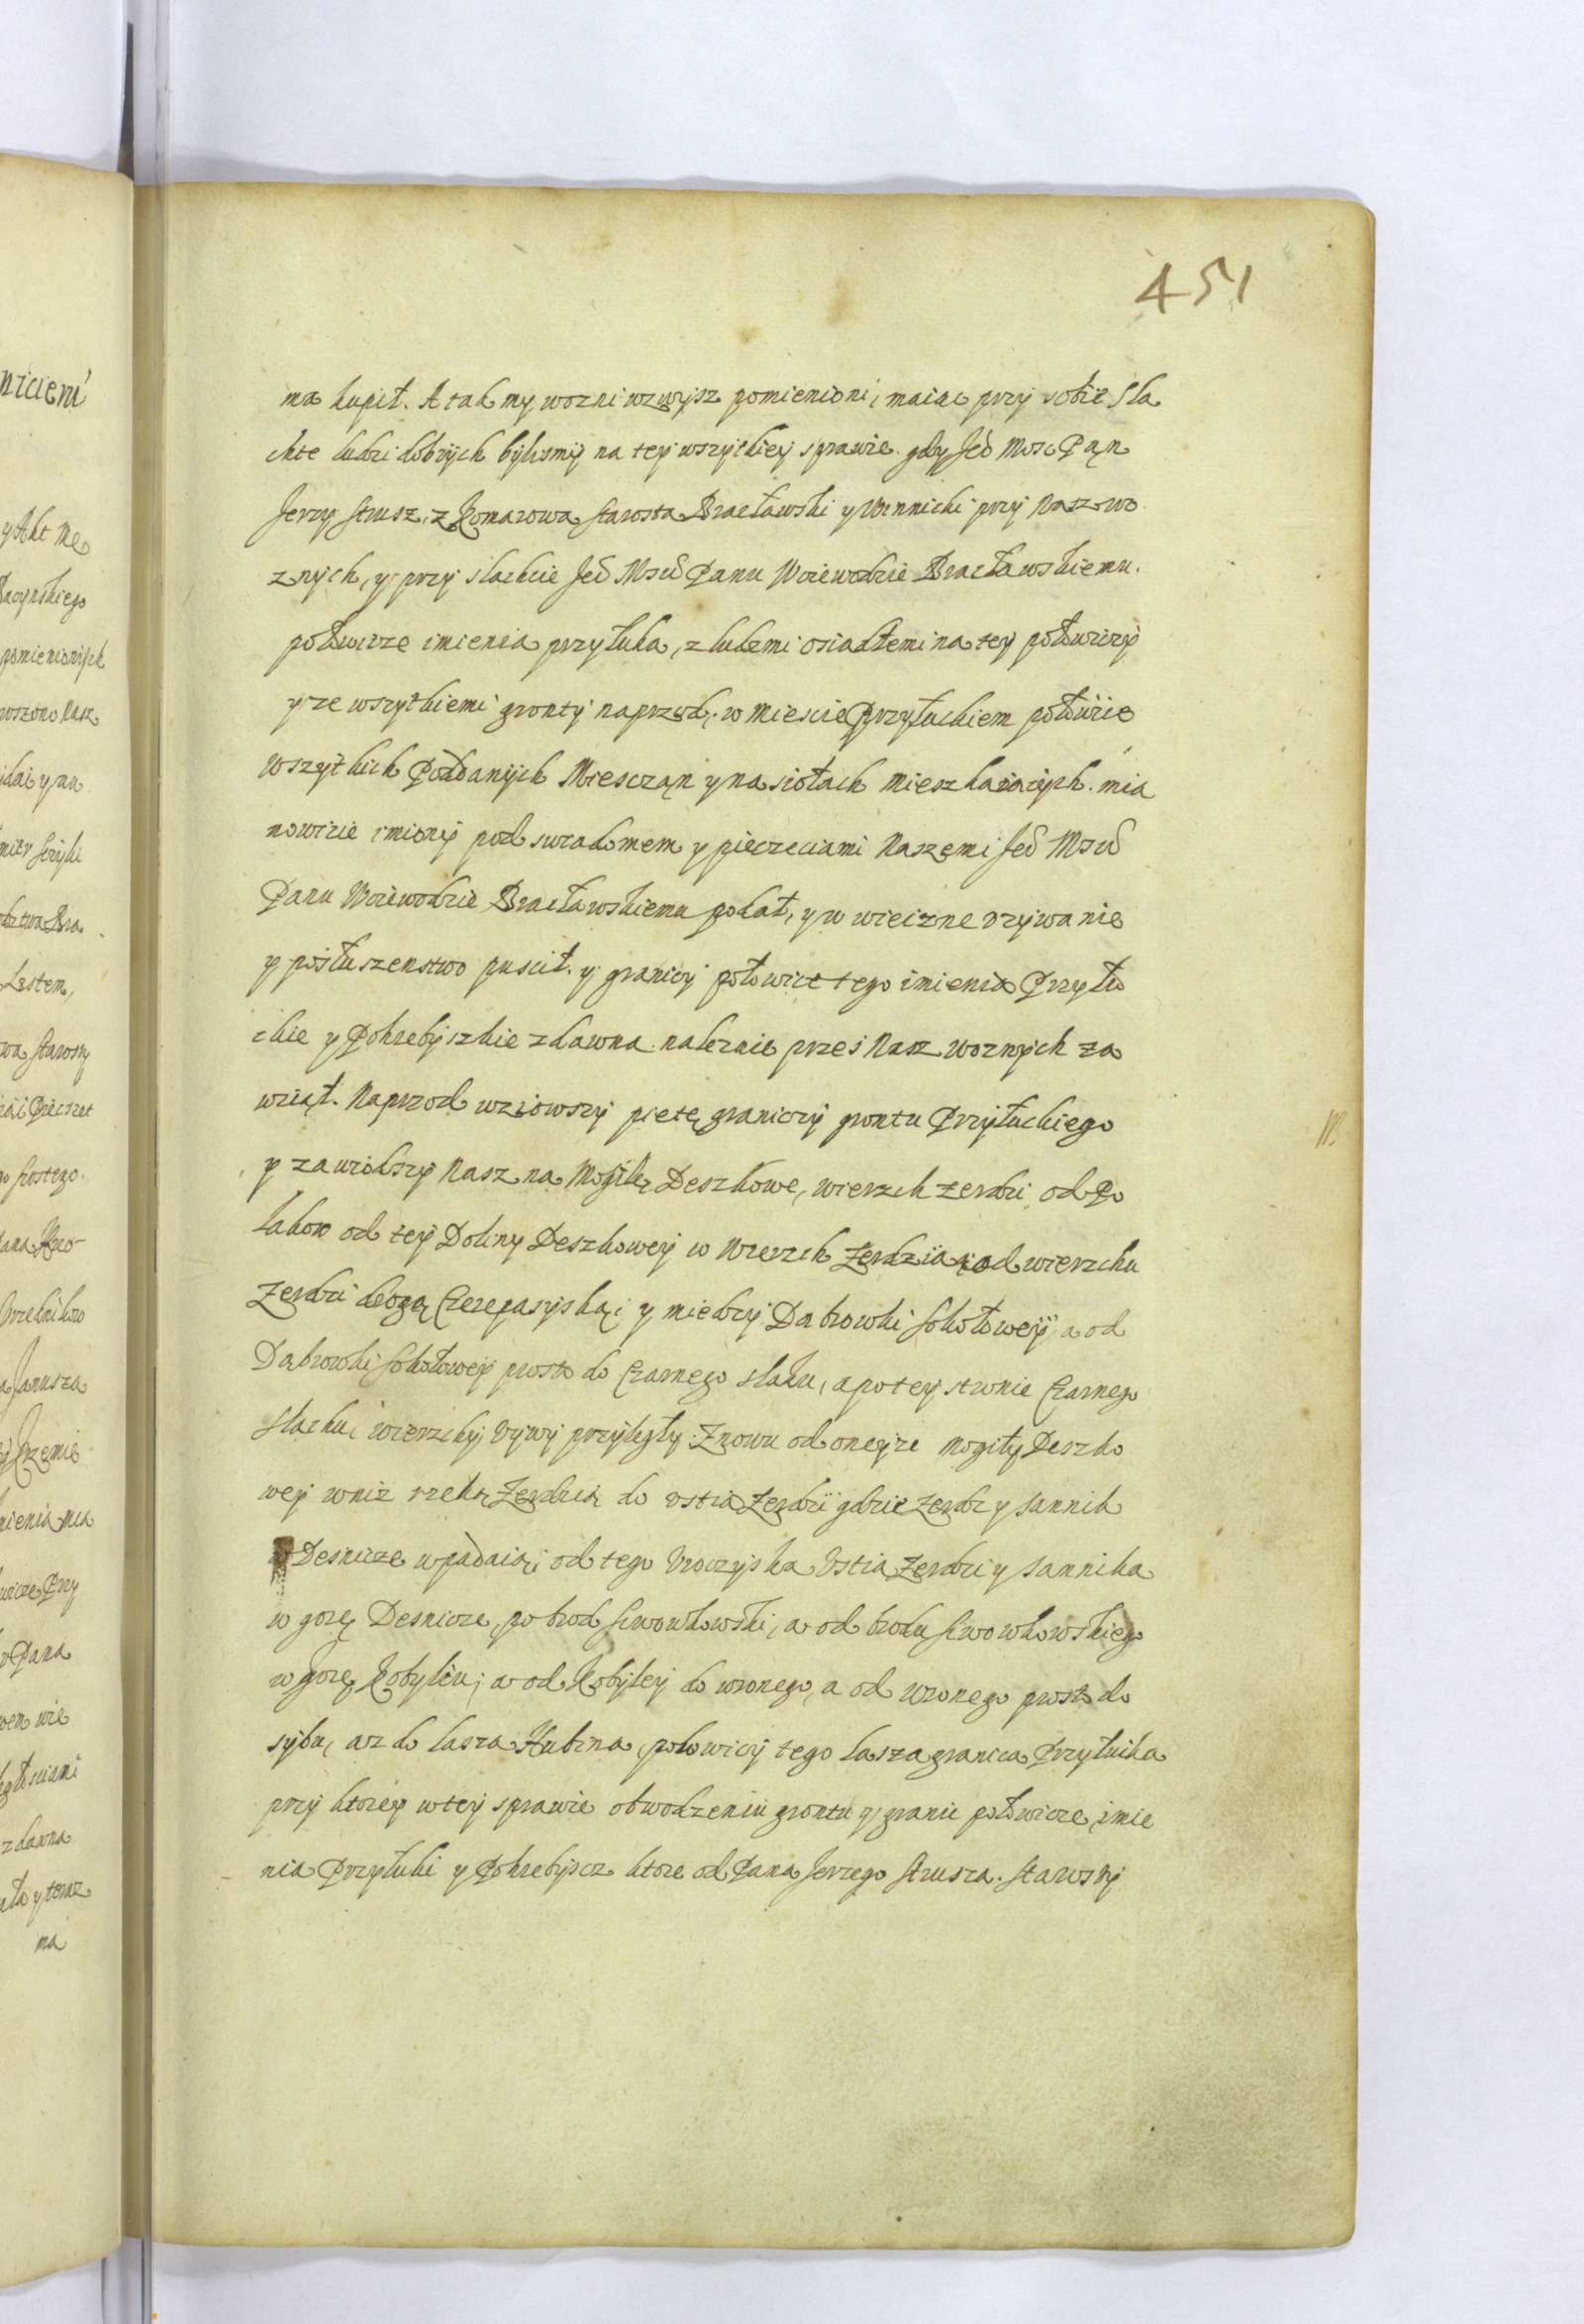 451
ma kupił. A tak my wozni wzwysz pomienioni, maiąc przy sobie sla
chte ludzi dobrych bylismy na tey wszytkiey sprawie gdy Jeo Mosc Pan
Jerzy Strusz, z Komarowa Starosta Bracławski y Winnicki przy Nasz wo
znych, y przy slachcie Jeo Msci Panu Woiewodzie Bracławskiemu.
połowicze imienia przyłuka, z ludzmi osiadłemi na tey połowiczy
y ze wszytkiemi gronty naprzod, w miescie Przyłuckiem połowice
wszytkich Poddanych Miesczan y na siołach mieszkaiacych. mia
nowicie imiony pod swiadomem y pieczeciami Naszemi Jeo Msci
Panu Woiewodzie Bracławskiemu podał, y w wieczne vzywanie
y posłuszenstwo puscił. y granicy połowice tego imienia Przyłu
ckie y Pohrebyszkie zdawna należnie przes Nasz woznych za
wziął. Naprzod wziowszy pietę graniczy grontu Przyłuckiego
y zawiodszy Nasz na Mogiłę Deszkowe, wierzch Zerdzi od Po
lakow od tey Doliny Deszkowey w Wierzch Zerdzia, od wierzchu
Zerdzi drogą Czerepasyską y miedzy Dabrowki Sokołowey a od
Dabrowki Sokołowey prosto do Czarnego slaku, a po tey stronie Czarnego
slachu, wierzchy vywy przyległy. Znowu od oneyze mogiły Deszko
wey wniz rzeką Zerdzią do vstia Zerdzi gdzie Zerdz y Sannik
w Desnicze wpadaią, od tego Vroczyska Vstia Zerdzi y Sannika
w gorę Desnicze, po brod Siwowkowski, a od brodu Siwowkowskiego
w gorę Kobyliu, a od Kobyley do wronego, a od wronego prosto do
sybu, az do lasza Hubina, połowicy tego lasza granica Przyłucka
przy ktorey w tey sprawie obwodzeniu grontu y granic połowicze, imie
nia Przyłuki y Pohrebyscz ktore od Pana Jerzego Strusza. Starosty